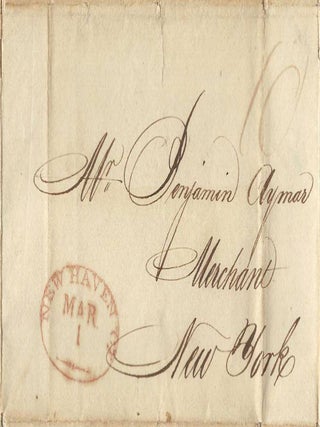 10
Mr. Benjamin Aymar
Merchant
New York
NEW HAVEN CT.
MAR
1